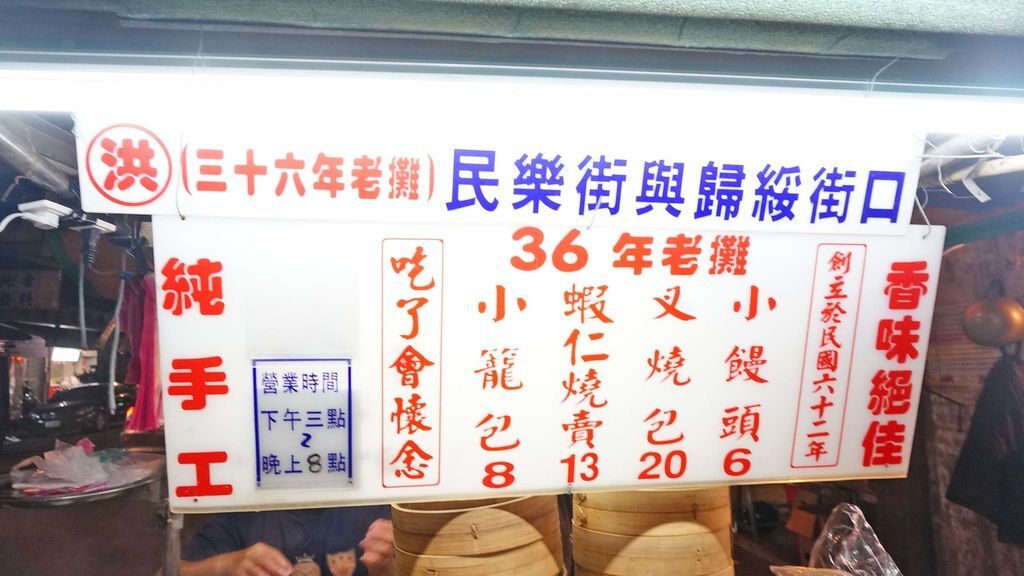 洪 (三十六年老攤) 民樂街與歸綏街口
36年老攤
香味絕佳
創立於民國六十二年
小饅頭6
叉燒包20
蝦仁燒賣13
小籠包8
吃了會懷念
營業時間
下午三點
2
晚上8點
純手工